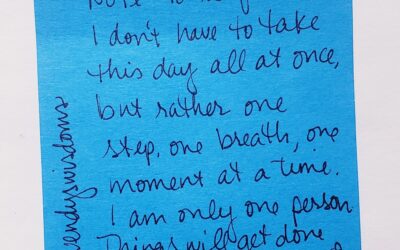 I don't have to take
this day all at once,
but rather one
step, one breath, one
moment at a time.
I am only one person
Things will get done